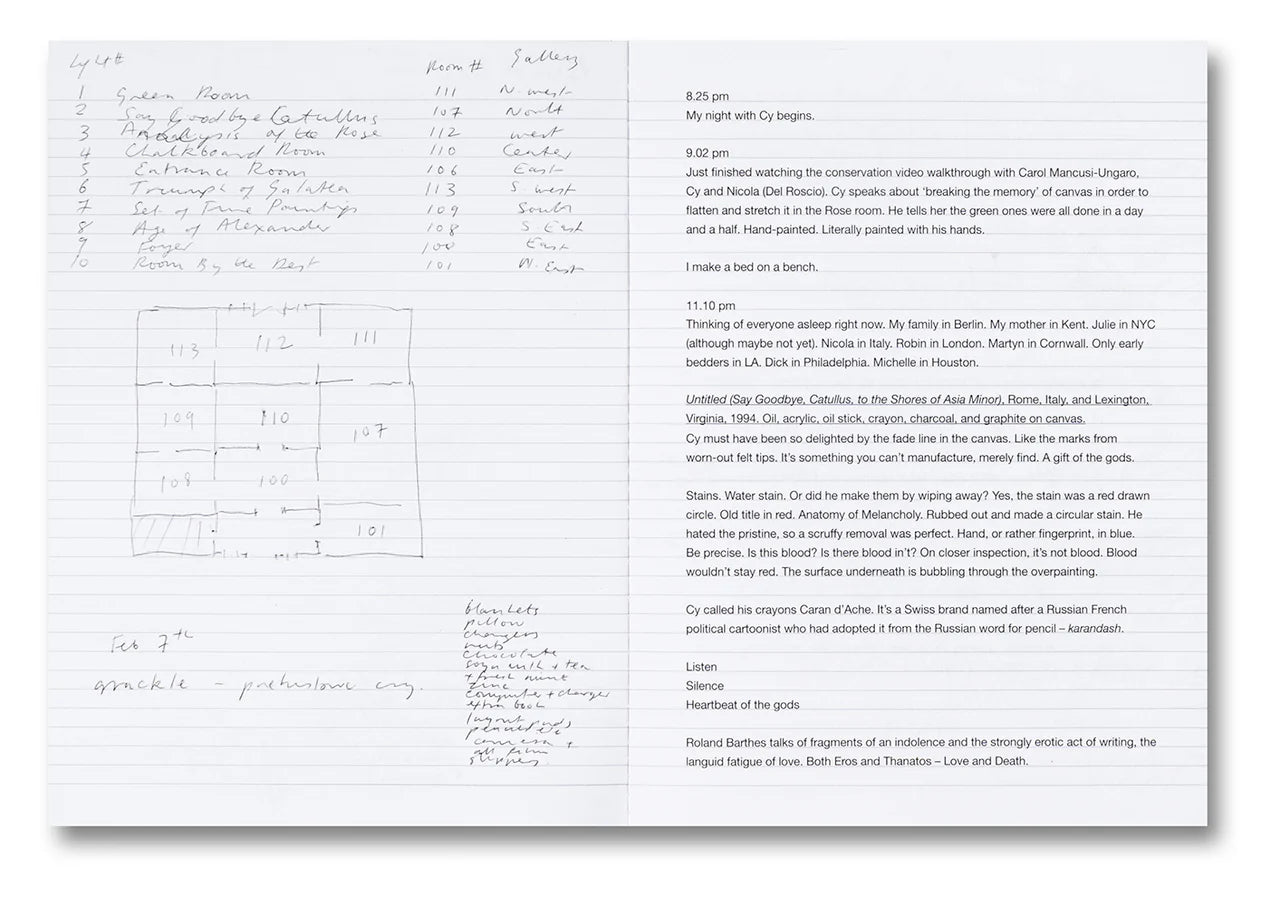 Cy Gallery Room #
1 Green Room 111 N. west
2 Say Goodbye Catullus 107 North
3 Analysis of the Rose 112 west
4 Chalkboard Room 110 Center
5 Entrance Room 106 East
6 Triumph of Galatea 113 S. west
7 Set of Paintings 109 South
8 Age of Alexander 108 S East
9 Foyer 100 East
10 Room By the 101 N. East
113 112 111
109 110
107
108 100
101
Feb 7th
grackle – prehistoric cry.
blankets
pillow
chargers
nuts
chocolate
soya milk + tea
+ fresh mint
computer + charger
extra book
layout pads
pencils etc
camera +
all film
slippers
8.25 pm
My night with Cy begins.
9.02 pm
Just finished watching the conservation video walkthrough with Carol Mancusi-Ungaro,
Cy and Nicola (Del Roscio). Cy speaks about ‘breaking the memory’ of canvas in order to
flatten and stretch it in the Rose room. He tells her the green ones were all done in a day
and a half. Hand-painted. Literally painted with his hands.
I make a bed on a bench.
11.10 pm
Thinking of everyone asleep right now. My family in Berlin. My mother in Kent. Julie in NYC
(although maybe not yet). Nicola in Italy. Robin in London. Martyn in Cornwall. Only early
bedders in LA. Dick in Philadelphia. Michelle in Houston.
Untitled (Say Goodbye, Catullus, to the Shores of Asia Minor), Rome, Italy, and Lexington,
Virginia, 1994. Oil, acrylic, oil stick, crayon, charcoal, and graphite on canvas.
Cy must have been so delighted by the fade line in the canvas. Like the marks from
worn-out felt tips. It’s something you can’t manufacture, merely find. A gift of the gods.
Stains. Water stain. Or did he make them by wiping away? Yes, the stain was a red drawn
circle. Old title in red. Anatomy of Melancholy. Rubbed out and made a circular stain. He
hated the pristine, so a scruffy removal was perfect. Hand, or rather fingerprint, in blue.
Be precise. Is this blood? Is there blood in’t? On closer inspection, it’s not blood. Blood
wouldn’t stay red. The surface underneath is bubbling through the overpainting.
Cy called his crayons Caran d’Ache. It’s a Swiss brand named after a Russian French
political cartoonist who had adopted it from the Russian word for pencil – karandash.
Listen
Silence
Heartbeat of the gods
Roland Barthes talks of fragments of an indolence and the strongly erotic act of writing, the
languid fatigue of love. Both Eros and Thanatos – Love and Death.